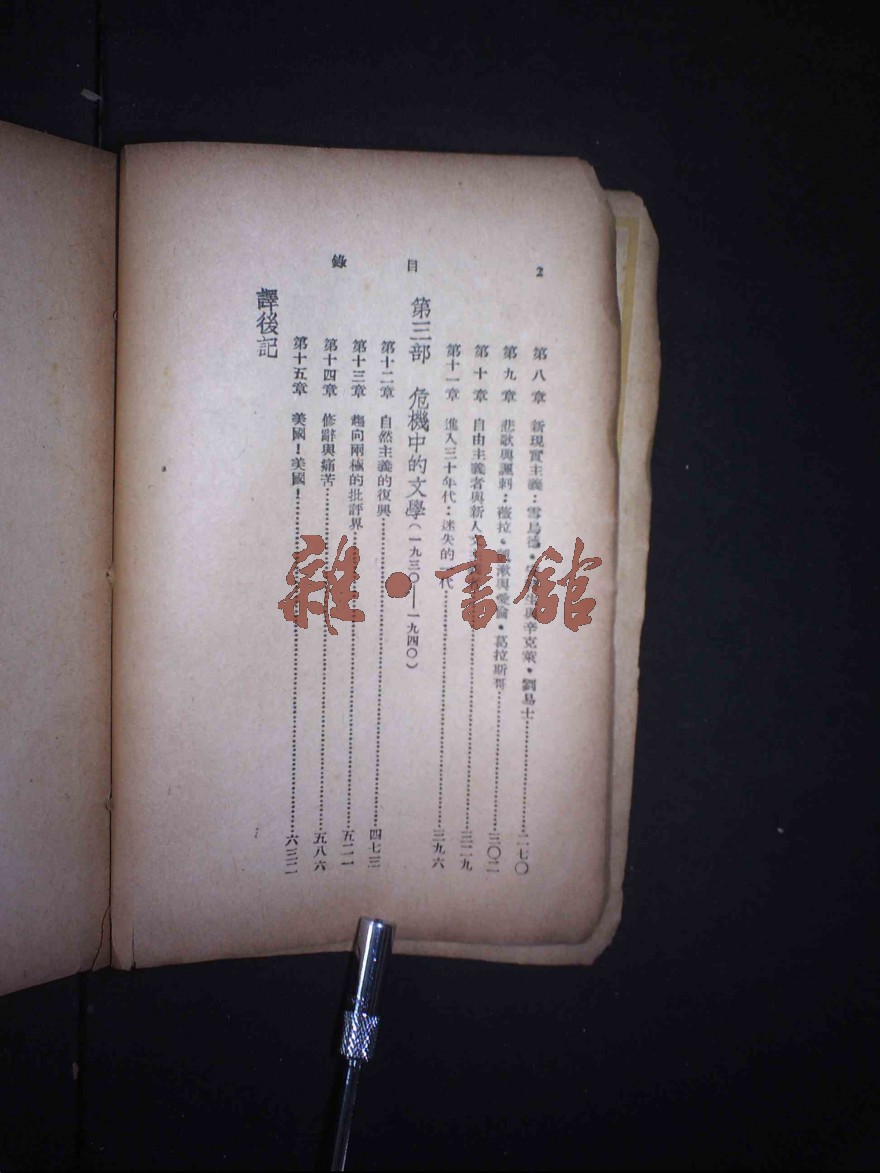 2
目錄
第八章 新現實主義：雪烏德・與辛克萊・劉易士……二七〇
第九章 悲歌與諷刺：薇拉・與愛倫・葛拉斯哥……三〇二
第十章 自由主義者與新人文……三二九
第十一章 進入三十年代：迷失的一代……三九六
第三部 危機中的文學（一九三〇——一九四〇）
第十二章 自然主義的復興……四七三
第十三章 趨向兩極的批評界……五二一
第十四章 修辭與痛苦……五八六
第十五章 美國！美國！……六三二
譯後記
雜・書館